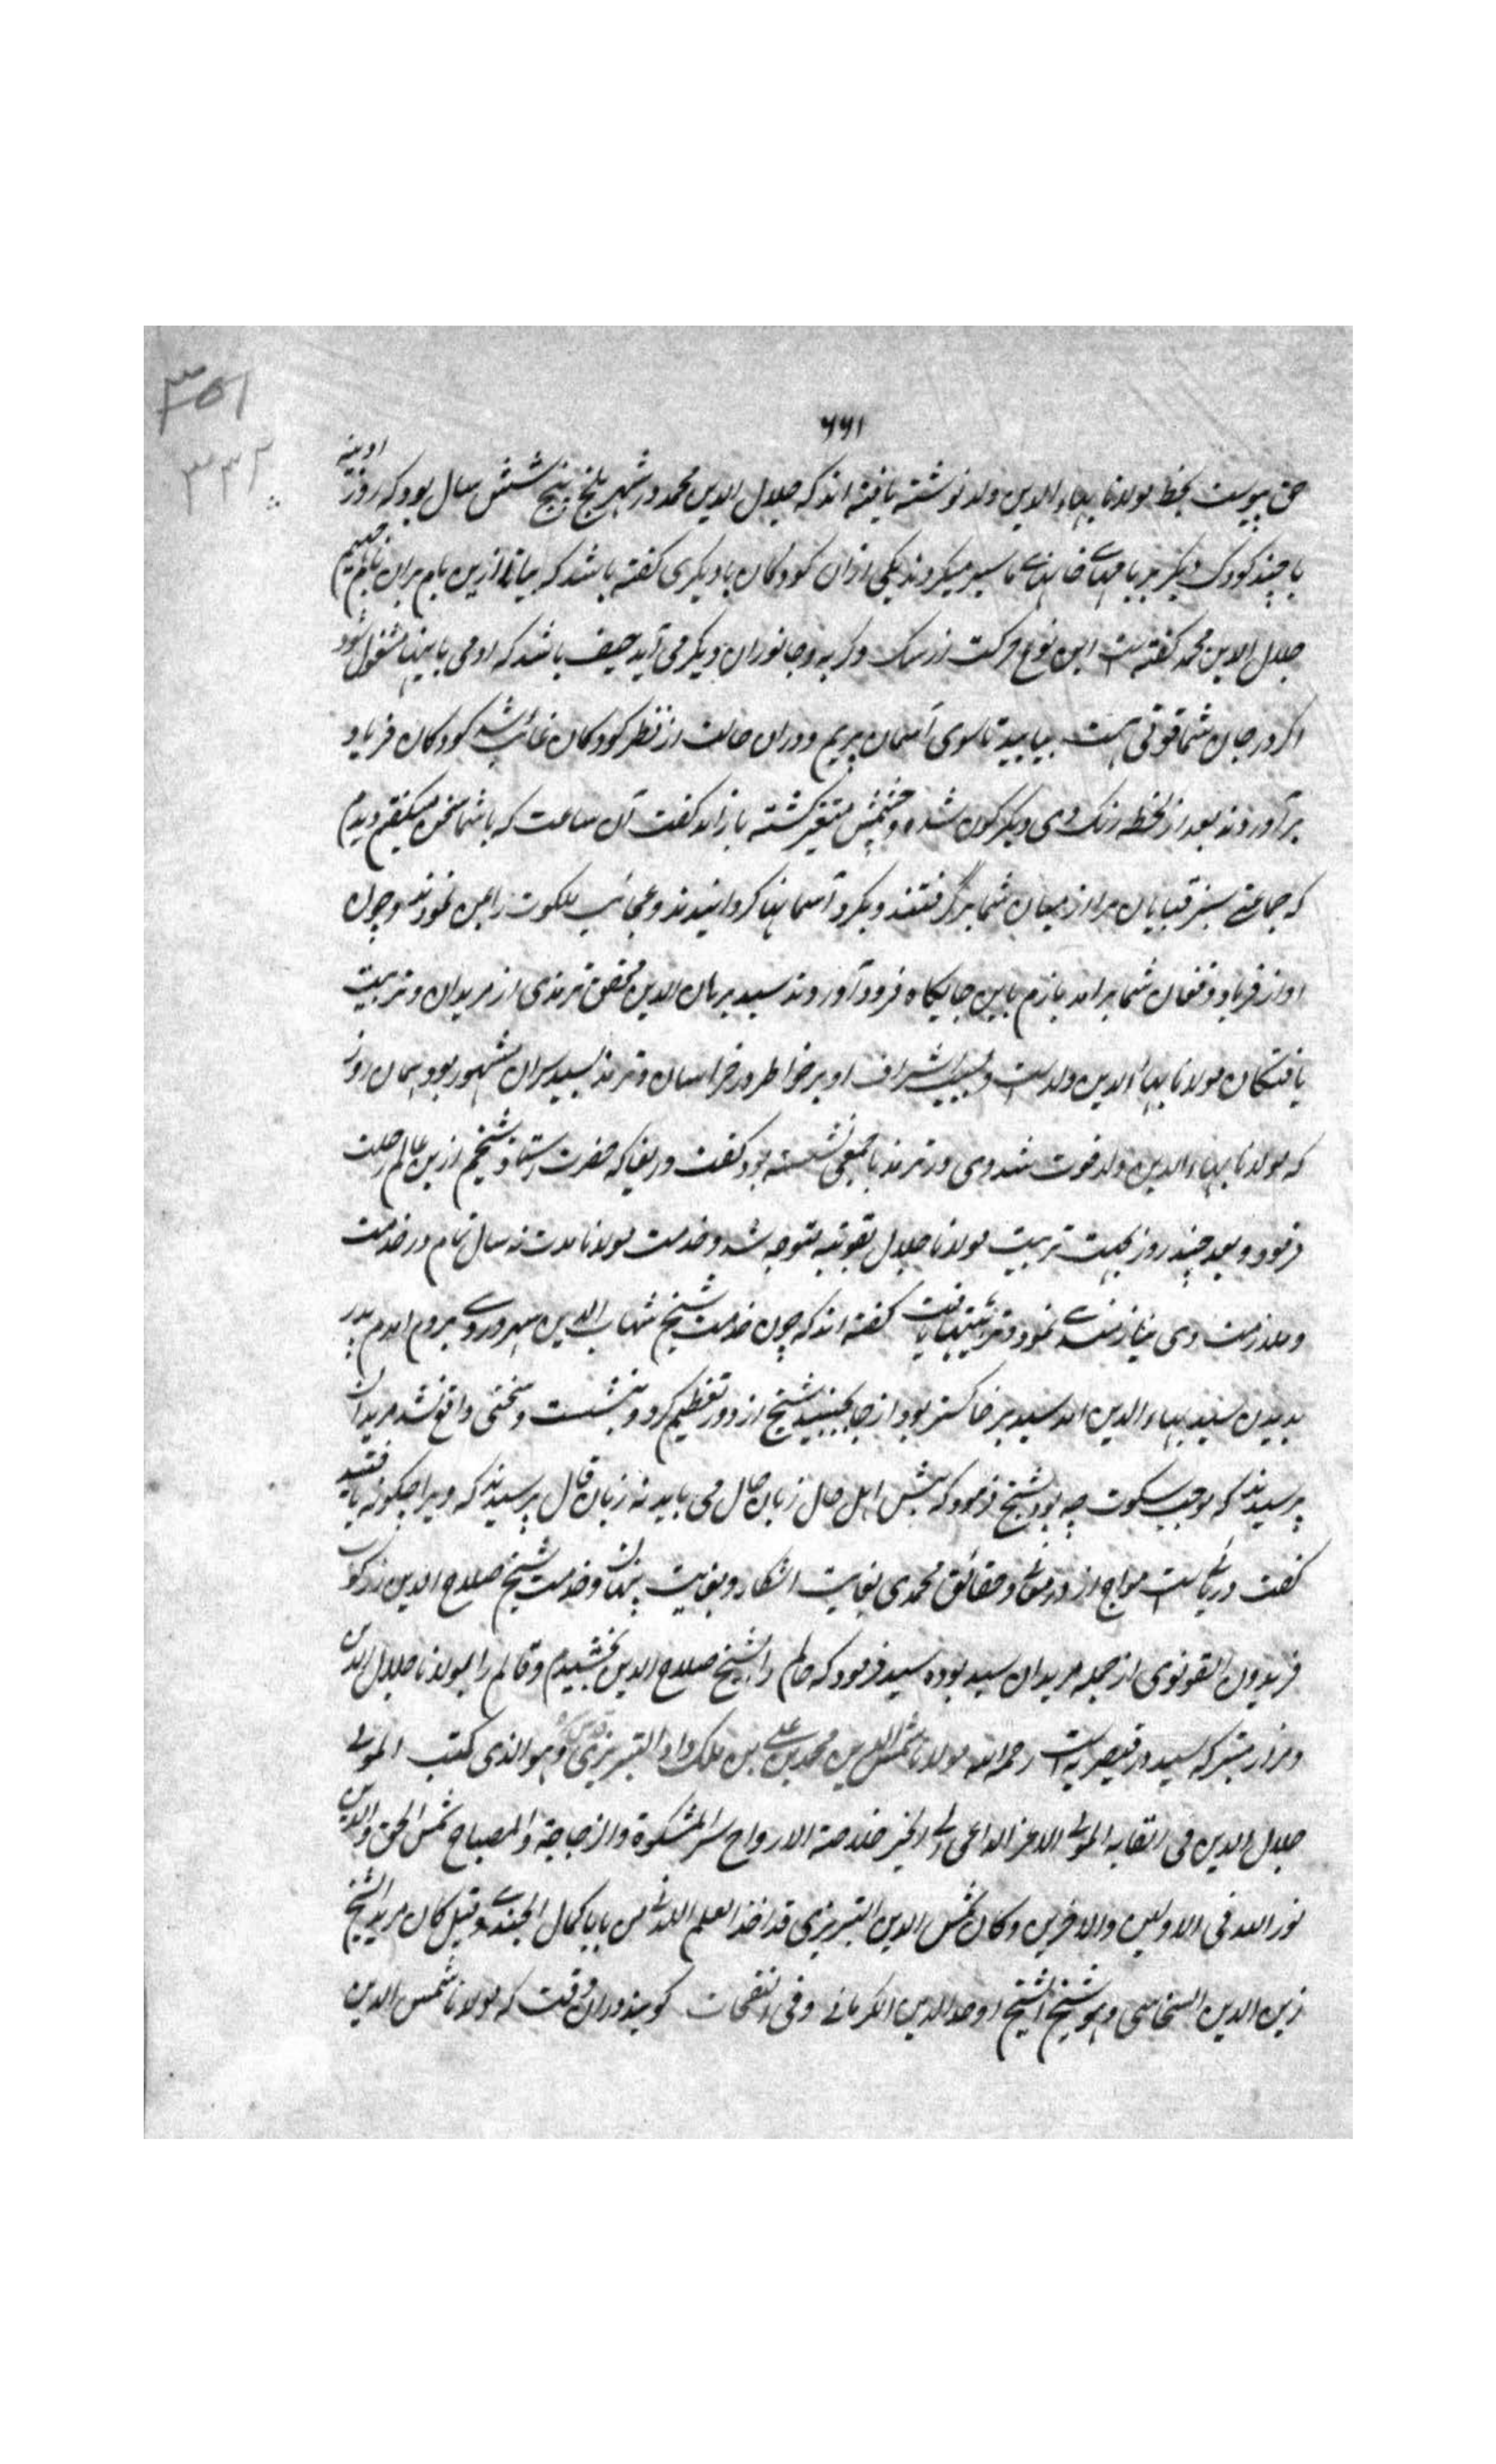 ۳۵۱
۳۳۲
۶۶۱
حق پیوست بخط مولانا بهاء الدین ولد نوشته یافته اند که جلال الدین محمد در شهر بلخ پنج شش سال بود که روز آدینه
با چند کودک دیگر بر بامهای خانهای ما سیر میکردند یکی ازان کودکان با دیگری گفته باشد که بیا تا ازین بام بران بام جهیم
جلال الدین محمد گفته است این نوع حرکت از سک و کربه و جانوران دیگر می آید حیف باشد که ادمی باینها مشغول شود
اگر در جان شما قوتی هست بیایید تا سوی آسمان پریم و دران حالت از نظر کودکان غائب شد کودکان فریاد
برآوردند بعد از لحظه رنک وی دیگرکون شده و چشمش متغیر کشته باز آمد گفت آن ساعت که باشما سخن میگفتم دیدم
که جماعتی سبز قبایان مرا از میان شما برگرفتند و بگرد آسمانها گردانیدند و عجائب ملکوت را بمن نمودند و چون
اواز فریاد و فغان شما برامد بازم باین جایگاه فرود آوردند سید برهان الدین محقق ترمذی از مریدان و تربیت
یافتگان مولانا بهاء الدین ولد است و بسبب اشراف او بر خواطر در خراسان و ترمذ بسید سردان مشهور بود همان روز
که مولانا بهاء الدین ولد فوت شد وی در ترمذ با جمعی نشسته بود گفت دریغا که حضرت استاد و شیخم ازین عالم رحلت
فرمود و بعد چند روز بجهت تربیت مولانا جلال بقونیه متوجه شد و خدمت مولانا مدت نه سال تمام در خدمت
و ملازمت وی نیازمندی نمود و تربیتها یافت گفته اند که چون خدمت شیخ شهاب الدین سهروردی بروم امدم
بدیدن سید بهاء الدین امد سید بر خاکستر بود از جا نجنبید شیخ از دور تعظیم کرد و بنشست و سخنی واقع نشد مریدان
پرسیدند که موجب سکوت چه بود شیخ فرمود که پیش اهل حال زبان حال می باید نه زبان قال پرسیدند که ویرا چگونه یافتید
گفت دریائیست مواج از درر معانی و حقائق محمدی بغایت اشکار و بغایت پنهان و خدمت شیخ صلاح الدین زرکوب
فریدون القونوی از جمله مریدان سید بوده سید فرمود که حالم را بشیخ صلاح الدین بخشیدم و قالم را بمولانا جلال الدین
و مزار متبرکه سید در قیصریه است رحمه الله مولانا شمس الدین محمد بن علی بن ملک داد التبریزی قدس سره وهو الذی کتب المولی
جلال الدین فی القابه المولی الاعز الداعی الی الخیر خلاصة الارواح سر المشکوة والزجاجة والمصباح شمس الحق والدین
نور الله فی الاولین والاخرین وکان شمس الدین التبریزی قد اخذ العلم اللدنی من بابا کمال الجندی وقیل کان مرید الشیخ
زین الدین السنجاسی وهو شیخ الشیخ اوحد الدین الکرمانی وفی النفحات گویند دران وقت که مولانا شمس الدین